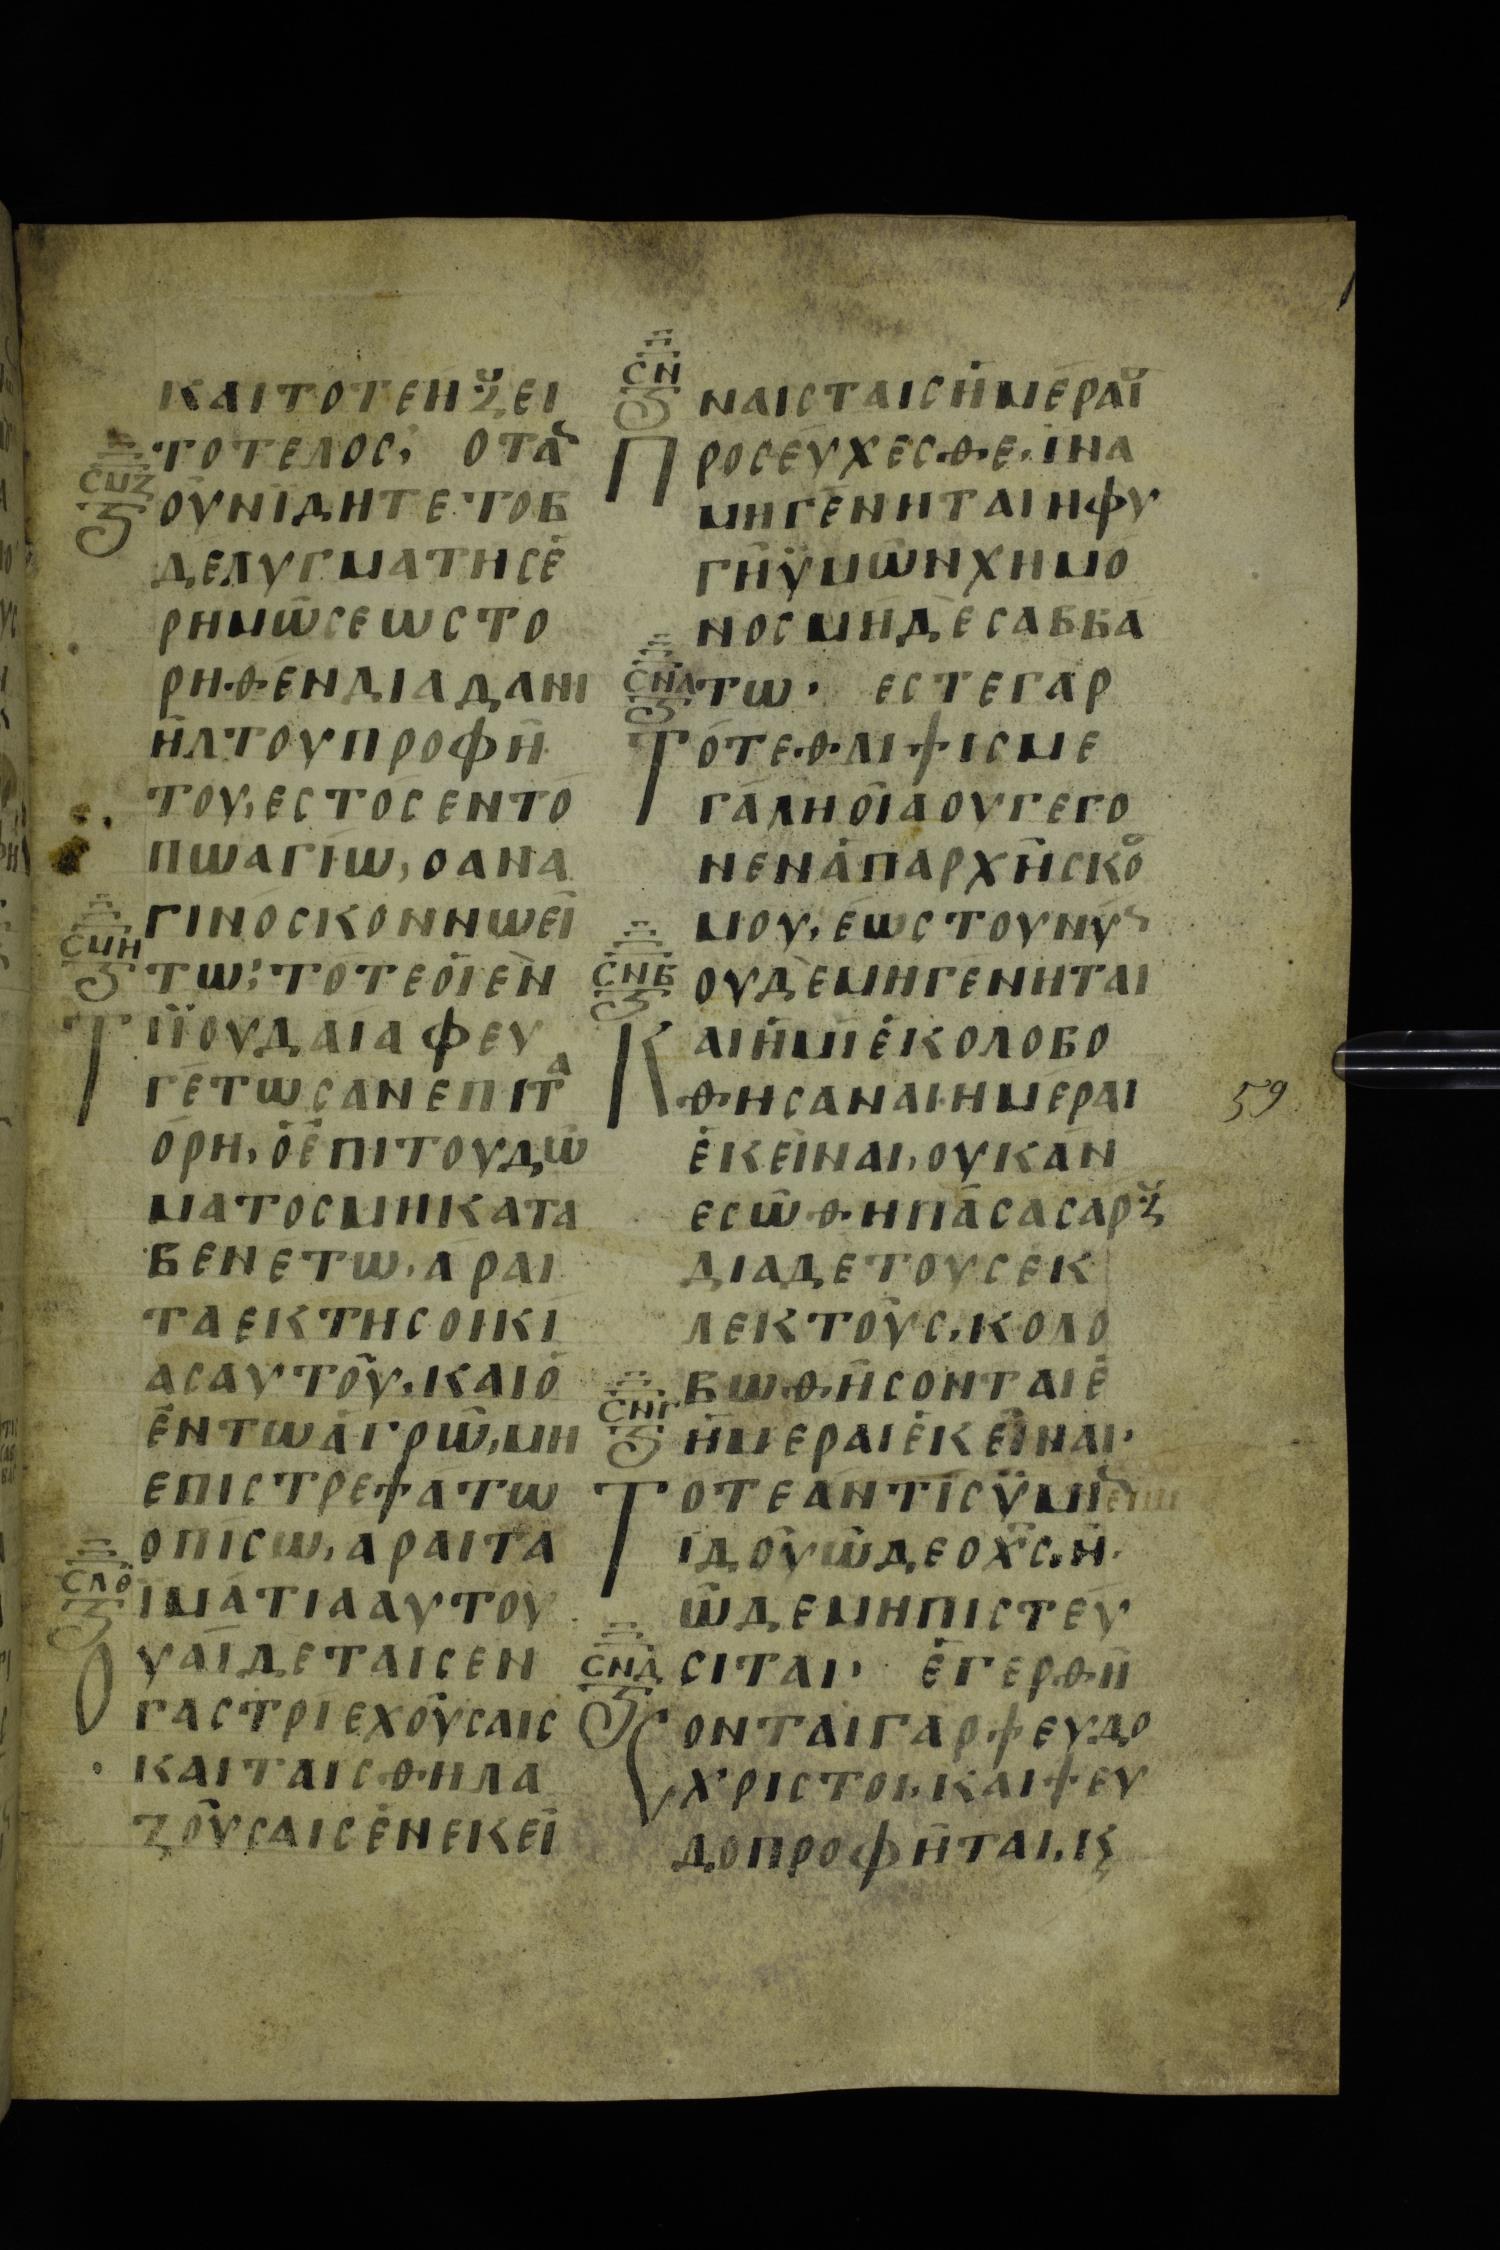 ΚΑΙΤΟΤΕΗΞΕΙ
ΤΟΤΕΛΟC, ΟΤΑ
CΜΖ
Γ
ΟΥΝΙΔΗΤΕΤΟΒ
ΔΕΛΥΓΜΑΤΗCΕ
ΡΗΜΩCΕΩCΤΟ
ΡΗΘΕΝΔΙΑΔΑΝΙ
ΗΛΤΟΥΠΡΟΦΗ
ΤΟΥ, ΕCΤΟCΕΝΤΟ
ΠΩΑΓΙΩ, ΟΑΝΑ
ΓΙΝΟCΚΟΝΝΩΕΙ
CΜΗ
Γ
ΤΩ: ΤΟΤΕΟΙΕΝ
ΤΙΟΥΔΑΙΑΦΕΥ
ΓΕΤΩCΑΝΕΠΙΤΑ
ΟΡΗ, ΟΕΠΙΤΟΥΔΩ
ΜΑΤΟCΜΗΚΑΤΑ
ΒΕΝΕΤΩ, ΑΡΑΙ
ΤΑΕΚΤΗCΟΙΚΙ
ΑCΑΥΤΟΥ, ΚΑΙΟ
ΕΝΤΩΑΓΡΩ, ΜΗ
ΕΠΙCΤΡΕΨΑΤΩ
ΟΠΙCΩ, ΑΡΑΙΤΑ
CΛΘ
Γ
ΙΜΑΤΙΑΑΥΤΟΥ
ΟΥΑΙΔΕΤΑΙCΕΝ
ΓΑCΤΡΙΕΧΟΥCΑΙC
ΚΑΙΤΑΙCΘΗΛΑ
ΖΟΥCΑΙCΕΝΕΚΕΙ
CΝ
Γ
ΝΑΙCΤΑΙCΗΜΕΡΑΙ
ΠΡΟCΕΥΧΕCΘΕ, ΙΝΑ
ΜΗΓΕΝΗΤΑΙΗΦΥ
ΓΗΫΜΩΝΧΗΜΟ
ΝΟCΜΗΔΕCΑΒΒΑ
CΝΑ
Γ
ΤΩ· ΕCΤΕΓΑΡ
ΤΟΤΕΘΛΙΨΙCΜΕ
ΓΑΛΗΟΙΑΟΥΓΕΓΟ
ΝΕΝΑΠΑΡΧΗCΚΟ
ΜΟΥ, ΕΩCΤΟΥΝΥ
CΝΒ
Γ
ΟΥΔΕΜΗΓΕΝΗΤΑΙ
ΚΑΙΗΜΙΕΚΟΛΟΒΟ
ΘΗCΑΝΑΙΗΜΕΡΑΙ
59
ΕΚΕΙΝΑΙ, ΟΥΚΑΝ
ΕCΩΘΗΠΑCΑCΑΡΞ
ΔΙΑΔΕΤΟΥCΕΚ
ΛΕΚΤΟΥC, ΚΟΛΟ
ΒΩΘΗCΟΝΤΑΙΕ
CΝΓ
Γ
ΗΜΕΡΑΙΕΚΕΙΝΑΙ·
ΤΟΤΕΑΝΤΙCΫΜΗ
ΙΔΟΥΩΔΕΟΧC, Η·
ΩΔΕΜΗΠΙCΤΕΥ
CΝΔ
Γ
CΙΤΑΙ· ΕΓΕΡΘΗ
CΟΝΤΑΙΓΑΡΨΕΥΔΟ
ΧΡΙCΤΟΙ, ΚΑΙΨΕΥ
ΔΟΠΡΟΦΗΤΑΙ, Κ